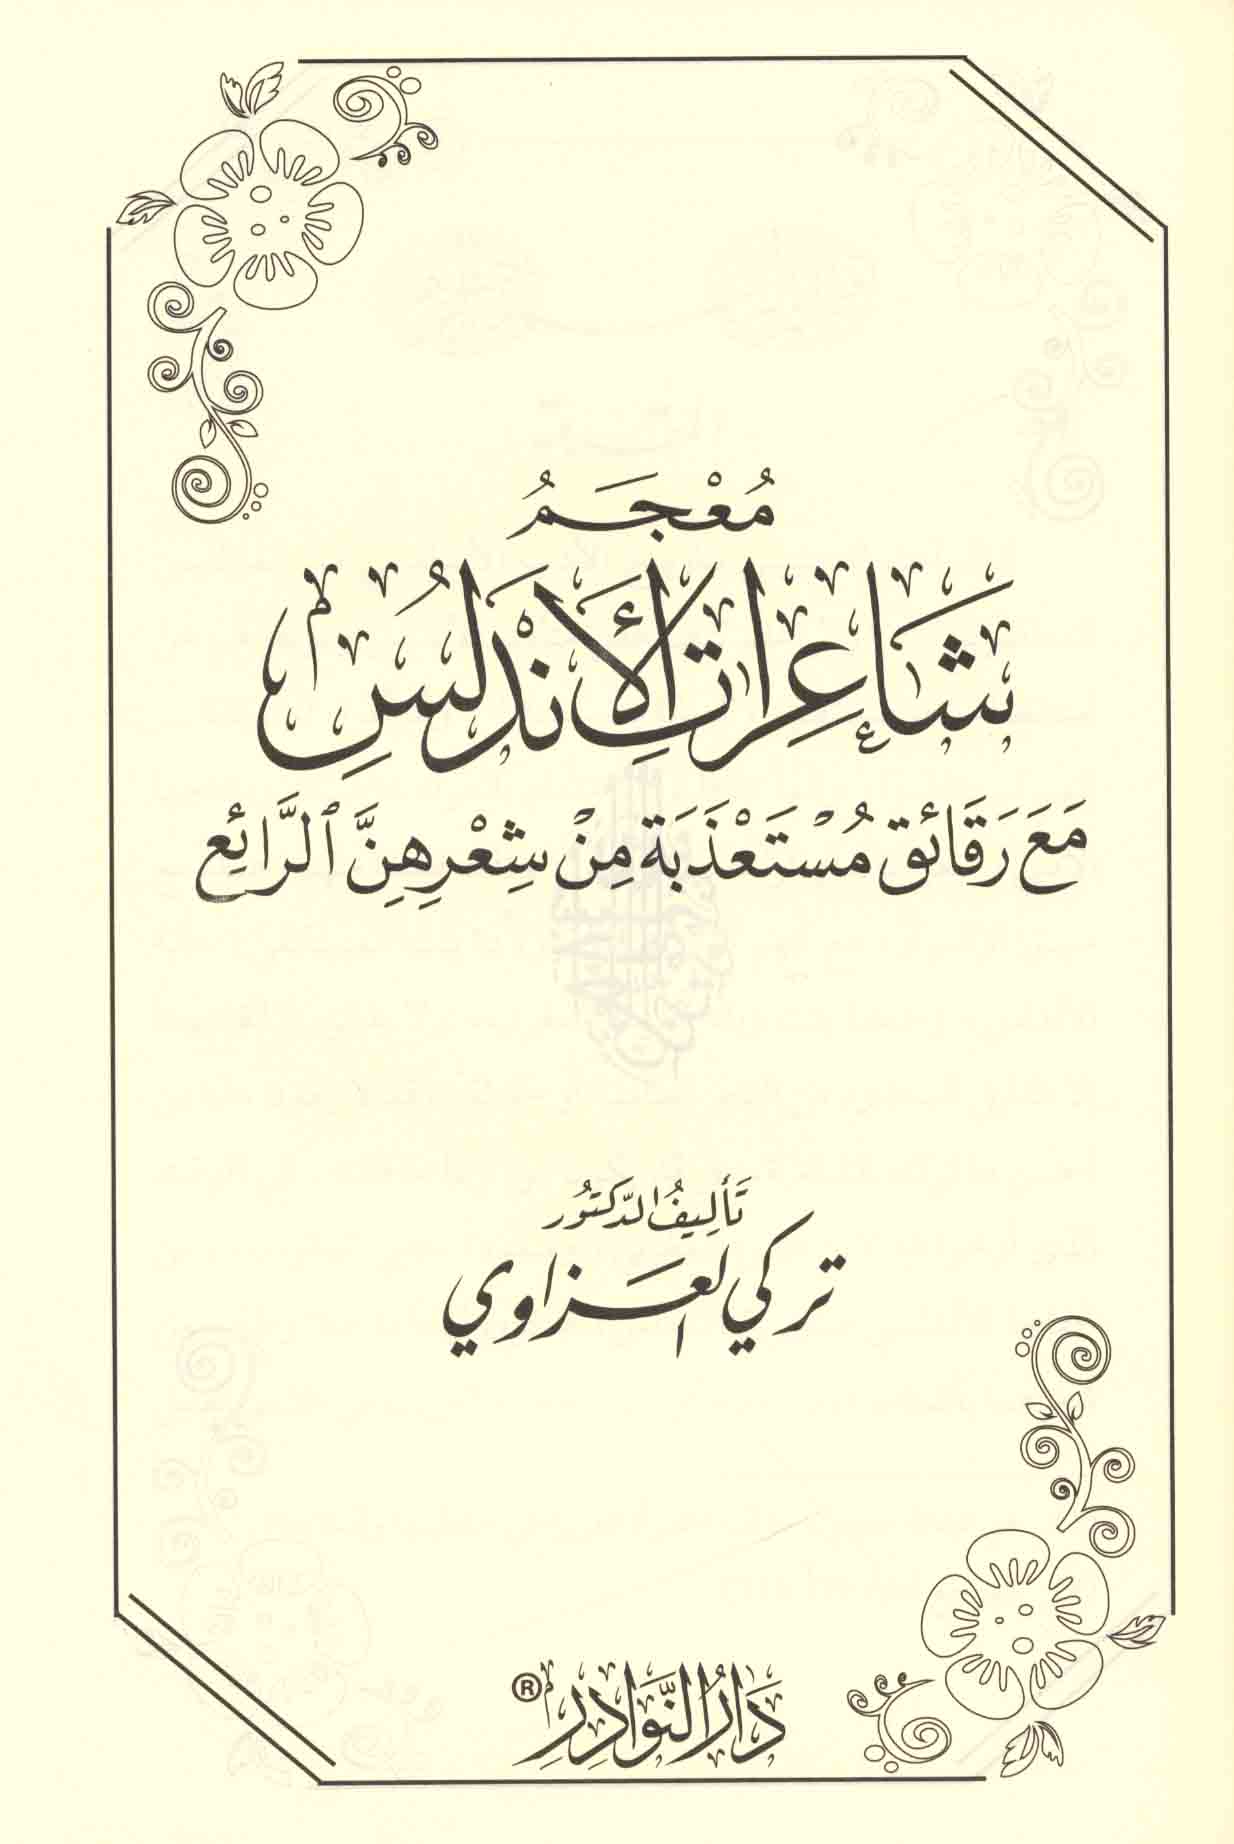 مُعْجَمُ
شَاعِرَاتِ الأَنْدَلُسِ
مَعَ رَقَائق مُسْتَعْذَبَة مِنْ شِعْرِهِنَّ ٱلرَّائِعِ
تَأليفُ الدّكتُور
تركي العزاوي
دَارُ النَّوَادِرِ ®